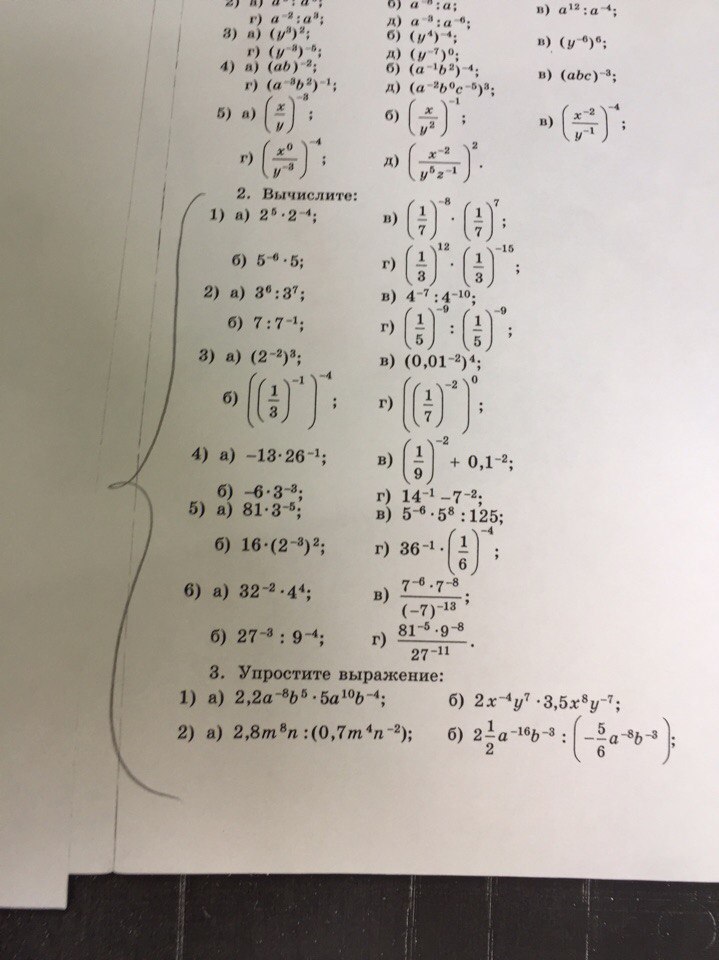 г) a⁻² : a³; д) a⁻³ : a⁻⁶; в) a¹² : a⁻⁴;
3) а) (y³)²; б) (y⁴)⁻⁴; в) (y⁻⁶)⁶;
г) (y⁻³)⁻⁵; д) (y⁻⁷)⁰;
4) а) (ab)⁻²; б) (a⁻¹b²)⁻⁴; в) (abc)⁻³;
г) (a⁻³b²)⁻¹; д) (a⁻²b⁰c⁻⁵)³;
5) а) (x/y)⁻³; б) (x/y²)⁻¹; в) (x⁻²/y⁻¹)⁻⁴;
г) (x⁰/y⁻³)⁻⁴; д) (x⁻²/y⁵z⁻¹)².
2. Вычислите:
1) а) 2⁵ · 2⁻⁴; в) (1/7)⁻⁸ · (1/7)⁷;
б) 5⁻⁶ · 5; г) (1/3)¹² · (1/3)⁻¹⁵;
2) а) 3⁶ : 3⁷; в) 4⁻⁷ : 4⁻¹⁰;
б) 7 : 7⁻¹; г) (1/5)⁻⁹ : (1/5)⁻⁹;
3) а) (2⁻²)³; в) (0,01⁻²)⁴;
б) ((1/3)⁻¹)⁻⁴; г) ((1/7)⁻²)⁰;
4) а) –13 · 26⁻¹; в) (1/9)⁻² + 0,1⁻²;
б) –6 · 3⁻³; г) 14⁻¹ – 7⁻²;
5) а) 81 · 3⁻⁵; в) 5⁻⁶ · 5⁸ : 125;
б) 16 · (2⁻³)²; г) 36⁻¹ · (1/6)⁻⁴;
6) а) 32⁻² · 4⁴; в) 7⁻⁶ · 7⁻⁸/(–7)⁻¹³;
б) 27⁻³ : 9⁻⁴; г) 81⁻⁵ · 9⁻⁸/27⁻¹¹.
3. Упростите выражение:
1) а) 2,2a⁻⁸b⁵ · 5a¹⁰b⁻⁴; б) 2x⁻⁴y⁷ · 3,5x⁸y⁻⁷;
2) а) 2,8m⁸n : (0,7m⁴n⁻²); б) 2 1/2 a⁻¹⁶b⁻³ : (–5/6 a⁻⁸b⁻³);